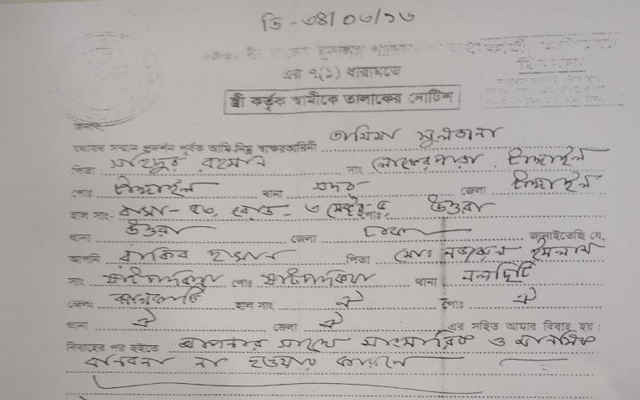 ডি - ৩৪/০৩/১৬
এর ৭(১) ধারামতে
স্ত্রী কর্তৃক স্বামীকে তালাকের নোটিশ
জনাব,
যথাযথ সম্মান প্রদর্শন পূর্বক আমি নিম্ন স্বাক্ষরকারিনী তামিমা সুলতানা
পিতা সহিদুর রহমান সাং লোকেরপাড়া, টাঙ্গাইল
পোঃ টাঙ্গাইল থানা সদর জেলা টাঙ্গাইল
হাল সাং বাসা- ৫৩, রোড- ৩ সেক্টর-৫ উত্তরা
থানা উত্তরা জেলা ঢাকা জানাইতেছি যে,
আপনি রাকিব হাসান পিতা মোঃ নজরুল ইসলাম
সাং ভাটপাকিয়া পোঃ ভাটপাকিয়া থানা নলছিটি
জেলা ঝালকাঠি হাল সাং ঐ পোঃ ঐ
থানা ঐ জেলা ঐ এর সহিত আমার বিবাহ হয়।
বিবাহের পর হইতে আপনার সাথে সাংসারিক ও মানসিক
বনিবনা না হওয়ার কারনে